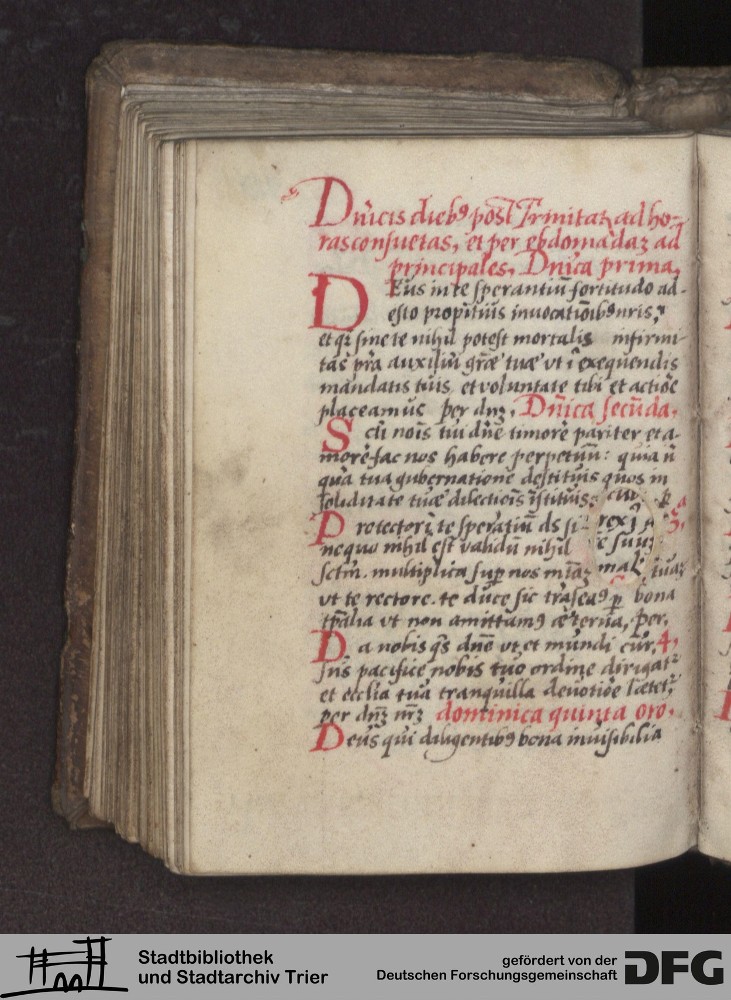 Dn̄icis dieb9 post Trinitatꝫ ad ho-
ras consuetas, et per ebdomadaꝫ ad
principales. Dn̄ica prima.
DEus in te sperantiū fortitudo ad-
esto propitius invocatiōib9 nris,
et qꝫ sine te nihil potest mortalis infirmi
tas pr̄a auxiliū grē tuæ vt ī exequendis
mādatis tuis et voluntate tibi et actiōe
placeamus per dnꝫ. Dn̄ica secūda.
Scti nois tui dn̄e timorē pariter et a-
morē fac nos habere perpetuū: quia ū
quā tua gubernatione destituis quos in
soliditate tuæ dilectiois īstituis.
Protector ī te speratiū ds si
ne quo nihil est validū nihil
sctm̄. multiplica sup nos miāꝫ tuāꝫ
vt te rectore. te duce sic trāseam9 ꝑ bona
tp̄alia vt non amittam9 æterna, per.
Da nobis qs dn̄e vt et mūndi cur, 4,
sus pacifice nobis tuo ordine dirigat
et ecclia tua tranquilla deuotiōe lætet,
per dnꝫ nrꝫ dominica quinta oro.
Deus qui diligentib9 bona inuisibilia
Stadtbibliothek
und Stadtarchiv Trier
gefördert von der
Deutschen Forschungsgemeinschaft
DFG